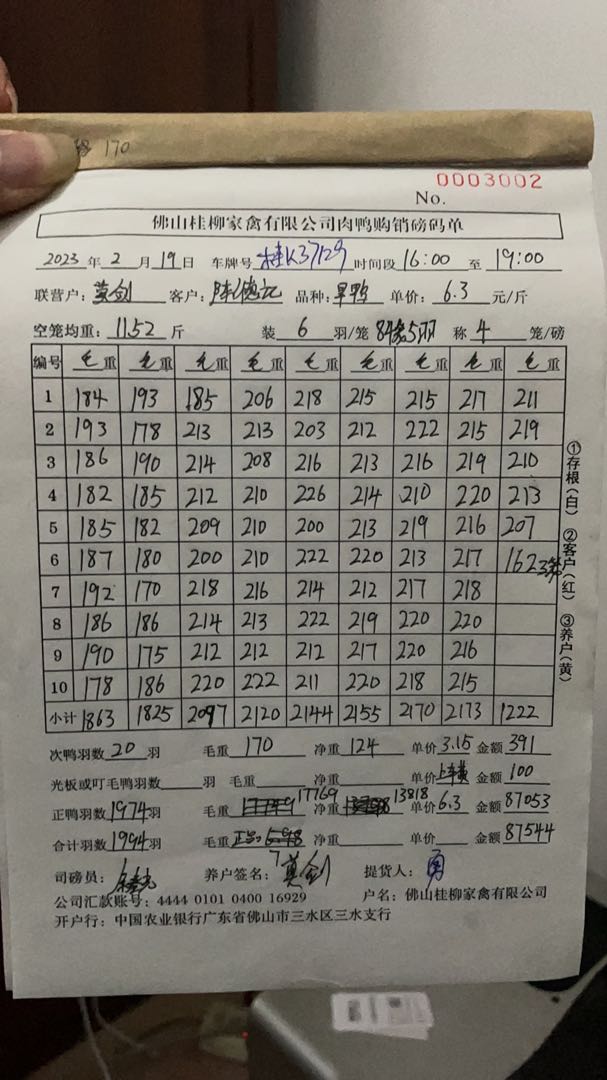 170
0003002
No.
佛山桂柳家禽有限公司肉鸭购销磅码单
2023 年 2 月 19 日 车牌号 桂K37129 时间段 16:00 至 19:00
联营户: 莫剑 客户: 品种: 旱鸭 单价: 6.3 元/斤
空笼均重: 11.52 斤 装 6 羽/笼 84 5羽 称 4 笼/磅
编号 毛重 毛重 毛重 毛重 毛重 毛重 毛重 毛重 毛重
1 184 193 185 206 218 215 215 217 211
2 193 178 213 213 203 212 222 215 219
3 186 190 214 208 216 213 216 219 210
4 182 185 212 210 226 214 210 220 213
5 185 182 209 210 200 213 219 216 207
6 187 180 200 210 222 220 213 217 162 3笼
7 192 170 218 216 214 212 217 218
8 186 186 214 213 222 219 220 220
9 190 175 212 212 212 217 220 216
10 178 186 220 222 211 220 218 215
小计 1863 1825 2097 2120 2144 2155 2170 2173 1222
①存根(白) ②客户(红) ③养户(黄)
次鸭羽数 20 羽 毛重 170 净重 124 单价 3.15 金额 391
光板或叮毛鸭羽数 羽 毛重 净重 单价 上车费 金额 100
正鸭羽数 1974 羽 毛重 17769 净重 13818 单价 6.3 金额 87053
合计羽数 1994 羽 毛重 净重 单价 金额 87544
司磅员: 养户签名: 莫剑 提货人:
公司汇款账号: 4444 0101 0400 16929 户名: 佛山桂柳家禽有限公司
开户行: 中国农业银行广东省佛山市三水区三水支行